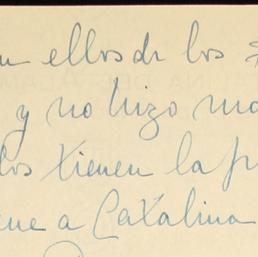 ellos de los
y no hizo
los tienen la
a Catalina